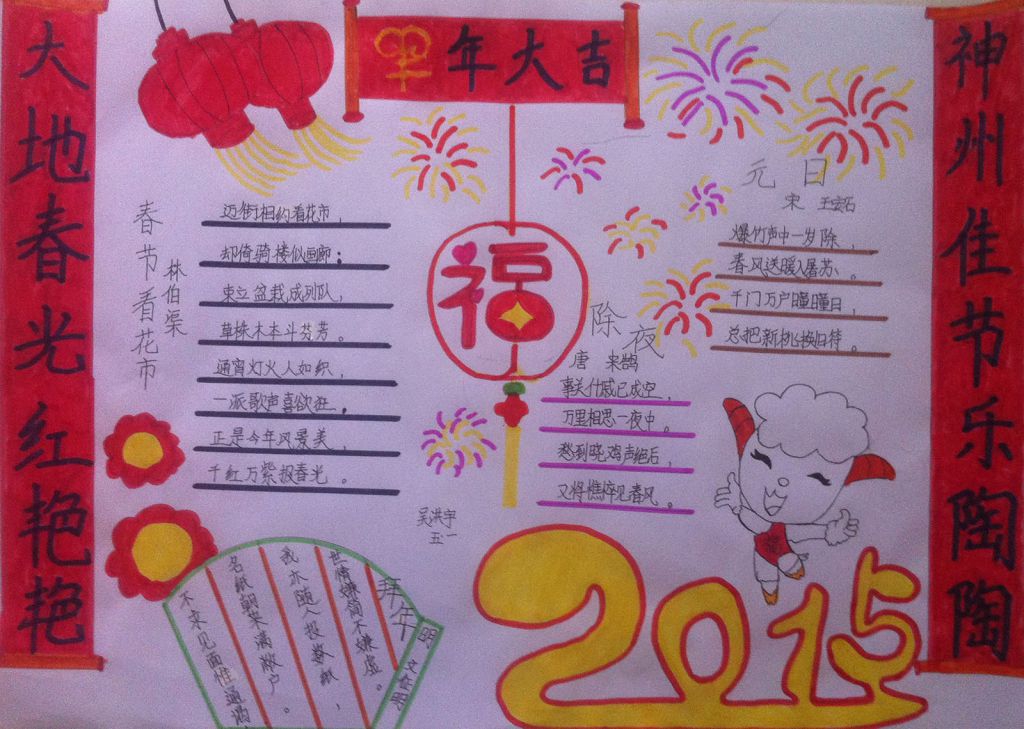 大地春光红艳艳
羊年大吉
神州佳节乐陶陶
春节看花市
林伯渠
迈街相约看花市,
却倚骑楼似画廊:
束立盆栽成列队,
草株木本斗芬芳。
通宵灯火人如织,
一派歌声喜欲狂。
正是今年风景美,
千红万紫报春光。
福
元日
宋 王安石
爆竹声中一岁除,
春风送暖入屠苏。
千门万户瞳瞳日,
总把新桃换旧
除夜
唐 来鹄
事关休戚已成空,
万里相思一夜中。
愁到晓鸡声绝后,
又将憔悴见春风。
吴洪宇
五·一
拜年
明 文征明
不求见面惟通谒
名纸朝来满敝户。
我亦随人投数纸,
世情嫌简不嫌虚。
2015